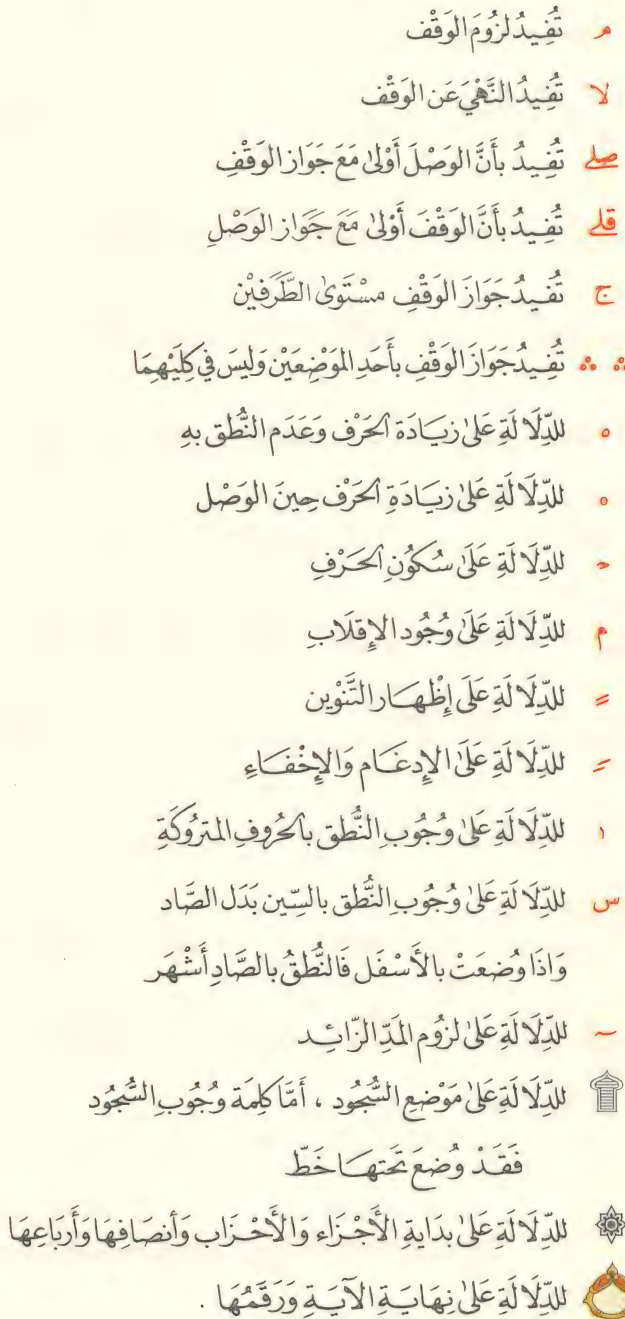 مـ تُفِيدُ لزُومَ الوَقْف
لا تُفِيدُ النَّهْيَ عَن الوَقْف
صلے تُفِيدُ بأَنَّ الوَصْلَ أَوْلىٰ مَعَ جَوَاز الوَقْفِ
قلے تُفِيدُ بأَنَّ الوَقْفَ أَوْلىٰ مَعَ جَوَاز الوَصْلِ
ج تُفِيدُ جَوَازَ الوَقْفِ مسْتَوىٰ الطَّرَفَيْن
∴ ∴ تُفِيدُ جَوَازَ الوَقْفِ بأَحَدِ الموَضِعَيْن وَليسَ في كِلَيْهِمَا
ه للدِّلَالَةِ عَلىٰ زيَادَة الحَرْف وَعَدَم النُّطق بهِ
ه للدِّلَالَةِ عَلىٰ زيَادَةِ الحَرْف حِينَ الوَصْل
حـ للدِّلَالَةِ عَلَىٰ سُكُونِ الحَرْفِ
م للدِّلَالَةِ عَلَىٰ وُجُود الإقلَابِ
ـً للدِّلَالَةِ عَلَىٰ إِظْهَار التَّنْوين
ـً للدِّلَالَةِ عَلَىٰ الإدغَام وَالإخْفَاءِ
ا للدِّلَالَةِ عَلىٰ وُجُوبِ النُّطق بالحُروفِ المتْروُكَةِ
س للدِّلَالَةِ عَلىٰ وُجُوبِ النُّطق بالسِّين بَدَل الصَّاد
وَاذَا وُضعَتْ بالأَسْفَل فَالنُّطقُ بالصَّادِ أَشْهَر
~ للدِّلَالَةِ عَلىٰ لزوُم المَدِّ الزّائِد
۩ للدِّلَالَةِ عَلىٰ مَوْضعِ السُّجُود ، أمَّا كلِمَة وُجُوبِ السُّجُود
فَقَدْ وُضعَ تَحتهَا خَطّ
۞ للدِّلَالَةِ عَلىٰ بدَايةِ الأَجْزَاء وَالأَحْزَاب وَأنصَافهَا وَأَربَاعِهَا
للدِّلَالَةِ عَلىٰ نهَايَةِ الآيَةِ وَرَقَمُهَا .